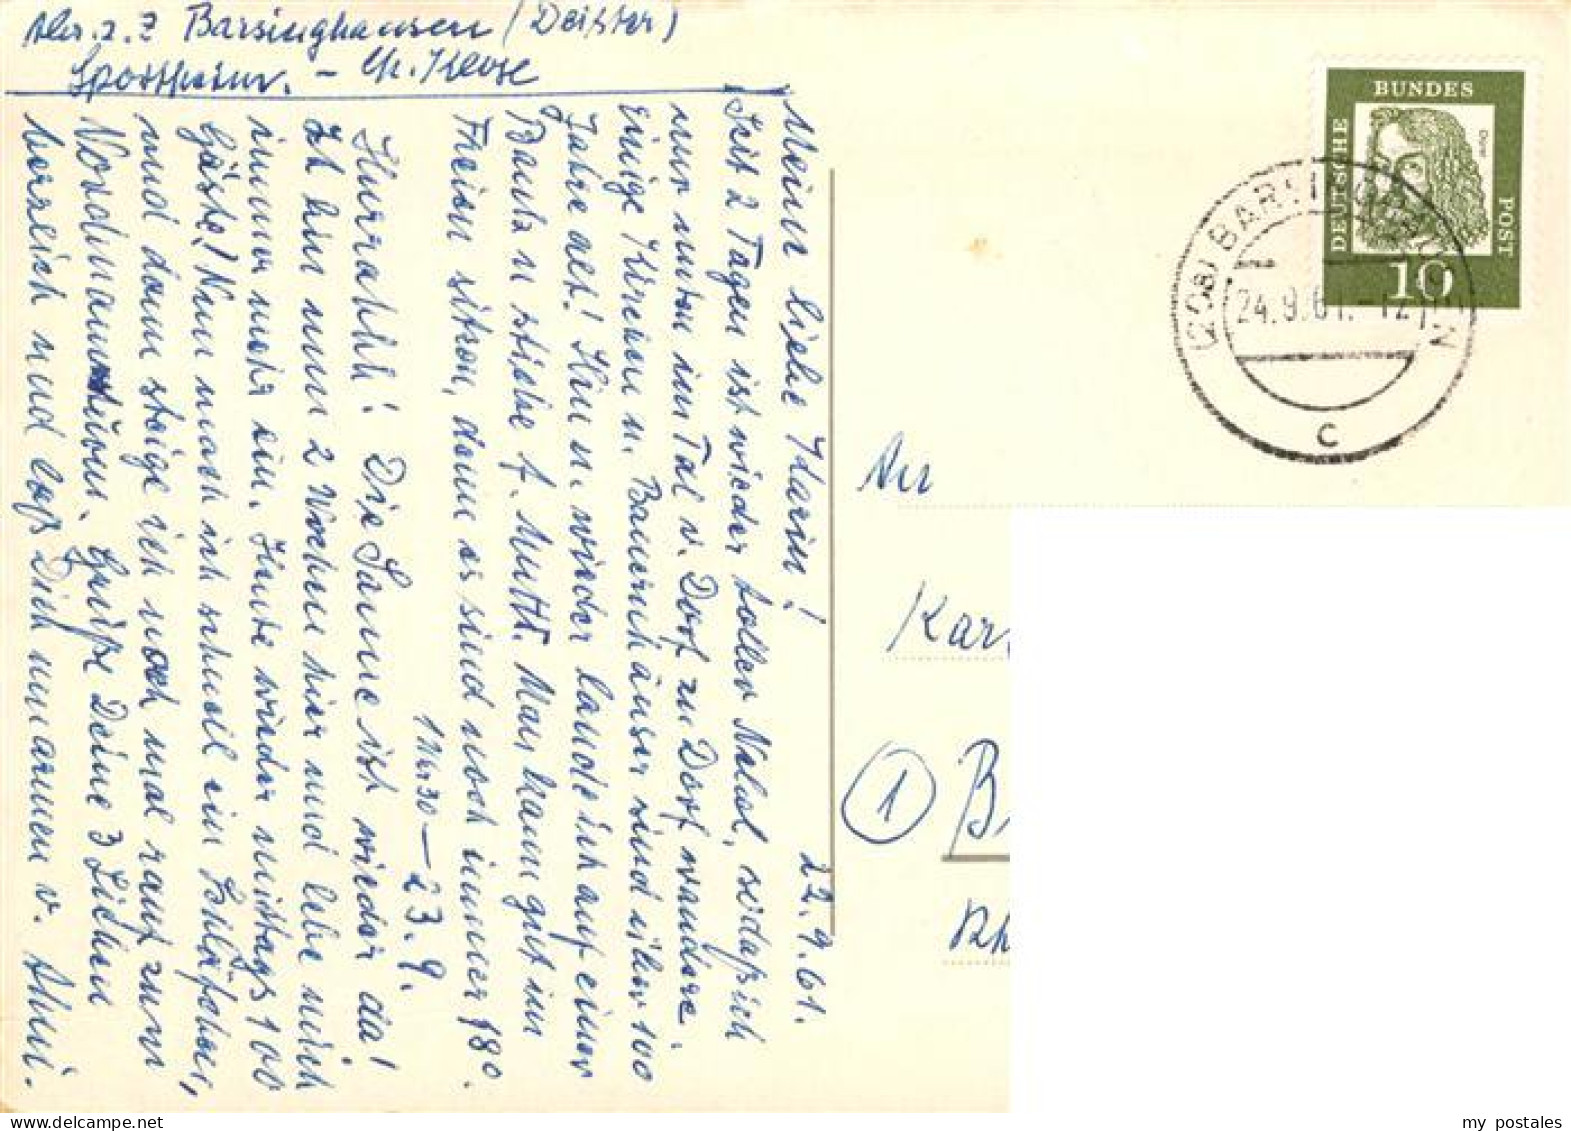 Abs. z. Z. Barsinghausen (Deister)
Sportheim. – Chr. Klose
22.9.61.
Meine liebe Karin!
Seit 2 Tagen ist wieder toller Nebel, sodaß ich
nur unten im Tal v. Dorf zu Dorf wandere.
Einige Kirchen u. Bauernhäuser sind über 100
Jahre alt! Hin u. wieder lande ich auf einer
Bank u. stricke f. Mutti. Man kann gut im
Freien sitzen, denn es sind noch immer 18°.
1 Uhr 30 — 23.9.
Hurrahhh! Die Sonne ist wieder da!
Ich bin nun 2 Wochen hier und lebe mich
immer mehr ein. Heute wieder mittags 100
Gäste! Nun mach ich schnell ein Schläfchen,
und dann steige ich noch mal rauf zum
Nordmannsturm. Grüße Deine 3 Lieben
herzlich und laß Dich umarmen v.
An
Kar
1 B
Rh
DEUTSCHE
BUNDES
POST
Dürer
10
(20a) BARSINGHAUSEN
24.9.61.-12
c
my postales